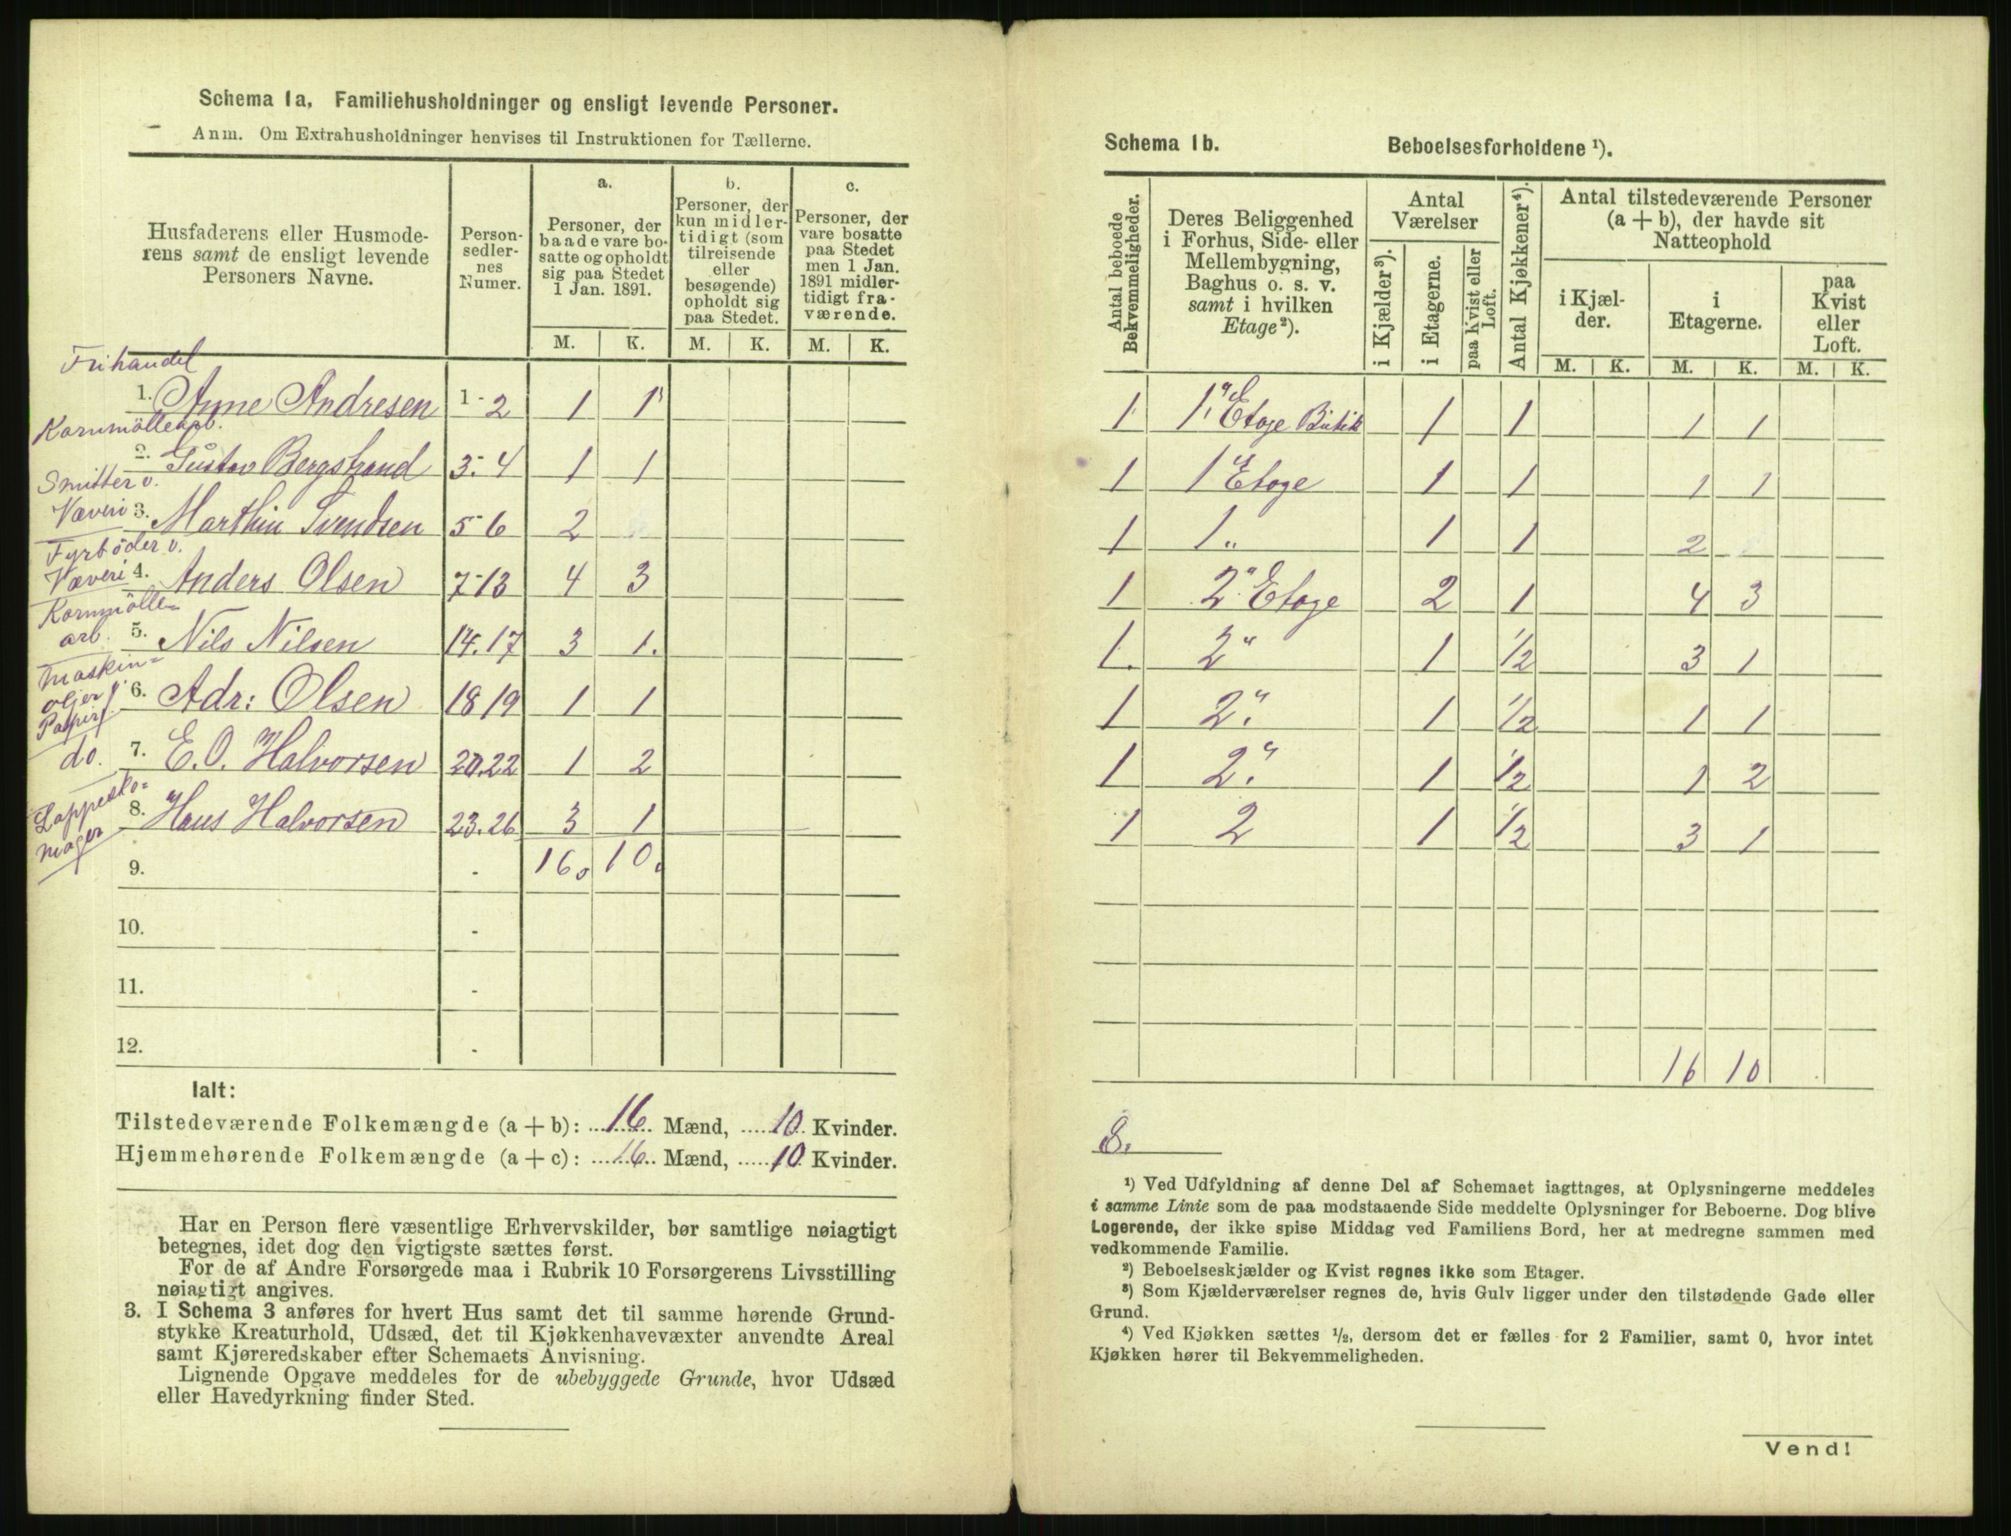 Schema 1a, Familiehusholdninger og ensligt levende Personer.
Anm. Om Extrahusholdninger henvises til Instruktionen for Tællerne.
Husfaderens eller Husmoderens samt de ensligt levende Personers Navne.
Personsedlernes Numer.
a. Personer, der baade vare bosatte og opholdt sig paa Stedet 1 Jan. 1891.
b. Personer, der kun midlertidigt (som tilreisende eller besøgende) opholdt sig paa Stedet.
c. Personer, der vare bosatte paa Stedet men 1 Jan. 1891 midlertidigt fraværende.
M. K. M. K. M. K.
Frihandel
1. Anne Andresen 1-2 1 1
Kornmöllearb.
2. Gustav Bergstrand 3-4 1 1
Smitter v. Væveri
3. Marthin Svendsen 5-6 2
Fyrböder v. Væveri
4. Anders Olsen 7-13 4 3
Kornmölle-arb.
5. Nils Nilsen 14.17 3 1.
Maskin-oljer Papirf.
6. Adr: Olsen 18 19 1 1
do.
7. E. O. Halvorsen 20.22 1 2
Lappesko-mager
8. Hans Halvorsen 23.26 3 1
9. - 16. 10.
10. -
11. -
12. -
Ialt:
Tilstedeværende Folkemængde (a + b): 16 Mænd, 10 Kvinder.
Hjemmehørende Folkemængde (a + c): 16 Mænd, 10 Kvinder.
Har en Person flere væsentlige Erhvervskilder, bør samtlige nøiagtigt
betegnes, idet dog den vigtigste sættes først.
For de af Andre Forsørgede maa i Rubrik 10 Forsørgerens Livsstilling
nøiagtigt angives.
3. I Schema 3 anføres for hvert Hus samt det til samme hørende Grund-
stykke Kreaturhold, Udsæd, det til Kjøkkenhavevæxter anvendte Areal
samt Kjøreredskaber efter Schemaets Anvisning.
Lignende Opgave meddeles for de ubebyggede Grunde, hvor Udsæd
eller Havedyrkning finder Sted.
Schema 1b. Beboelsesforholdene ¹).
Antal beboede Bekvemmeligheder.
Deres Beliggenhed i Forhus, Side- eller Mellembygning, Baghus o. s. v. samt i hvilken Etage²).
Antal Værelser
i Kjælder³).
i Etagerne.
paa Kvist eller Loft.
Antal Kjøkkener⁴).
Antal tilstedeværende Personer (a + b), der havde sit Natteophold
i Kjælder.
i Etagerne.
paa Kvist eller Loft.
M. K. M. K. M. K.
1 1" Etage Butik 1 1 1 1
1 1" Etage 1 1 1 1
1 1 " 1 1 2
1 2" Etage 2 1 4 3
1. 2" 1 1/2 3 1
1 2." 1 1/2 1 1
1 2." 1 1/2 1 2
1 2 1 1/2 3 1
16 10
8.
¹) Ved Udfyldning af denne Del af Schemaet iagttages, at Oplysningerne meddeles
i samme Linie som de paa modstaaende Side meddelte Oplysninger for Beboerne. Dog blive
Logerende, der ikke spise Middag ved Familiens Bord, her at medregne sammen med
vedkommende Familie.
²) Beboelseskjælder og Kvist regnes ikke som Etager.
³) Som Kjælderværelser regnes de, hvis Gulv ligger under den tilstødende Gade eller
Grund.
⁴) Ved Kjøkken sættes ½, dersom det er fælles for 2 Familier, samt 0, hvor intet
Kjøkken hører til Bekvemmeligheden.
Vend!